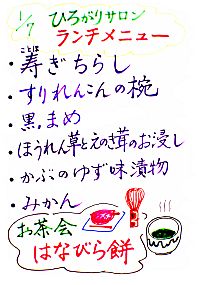 1/7 ひろがりサロン
ランチメニュー
ことほ
・寿ぎちらし
・すりれんこんの椀
・黒まめ
・ほうれん草とえのき茸のお浸し
・かぶのゆず味漬物
・みかん
お茶会
はなびら餅